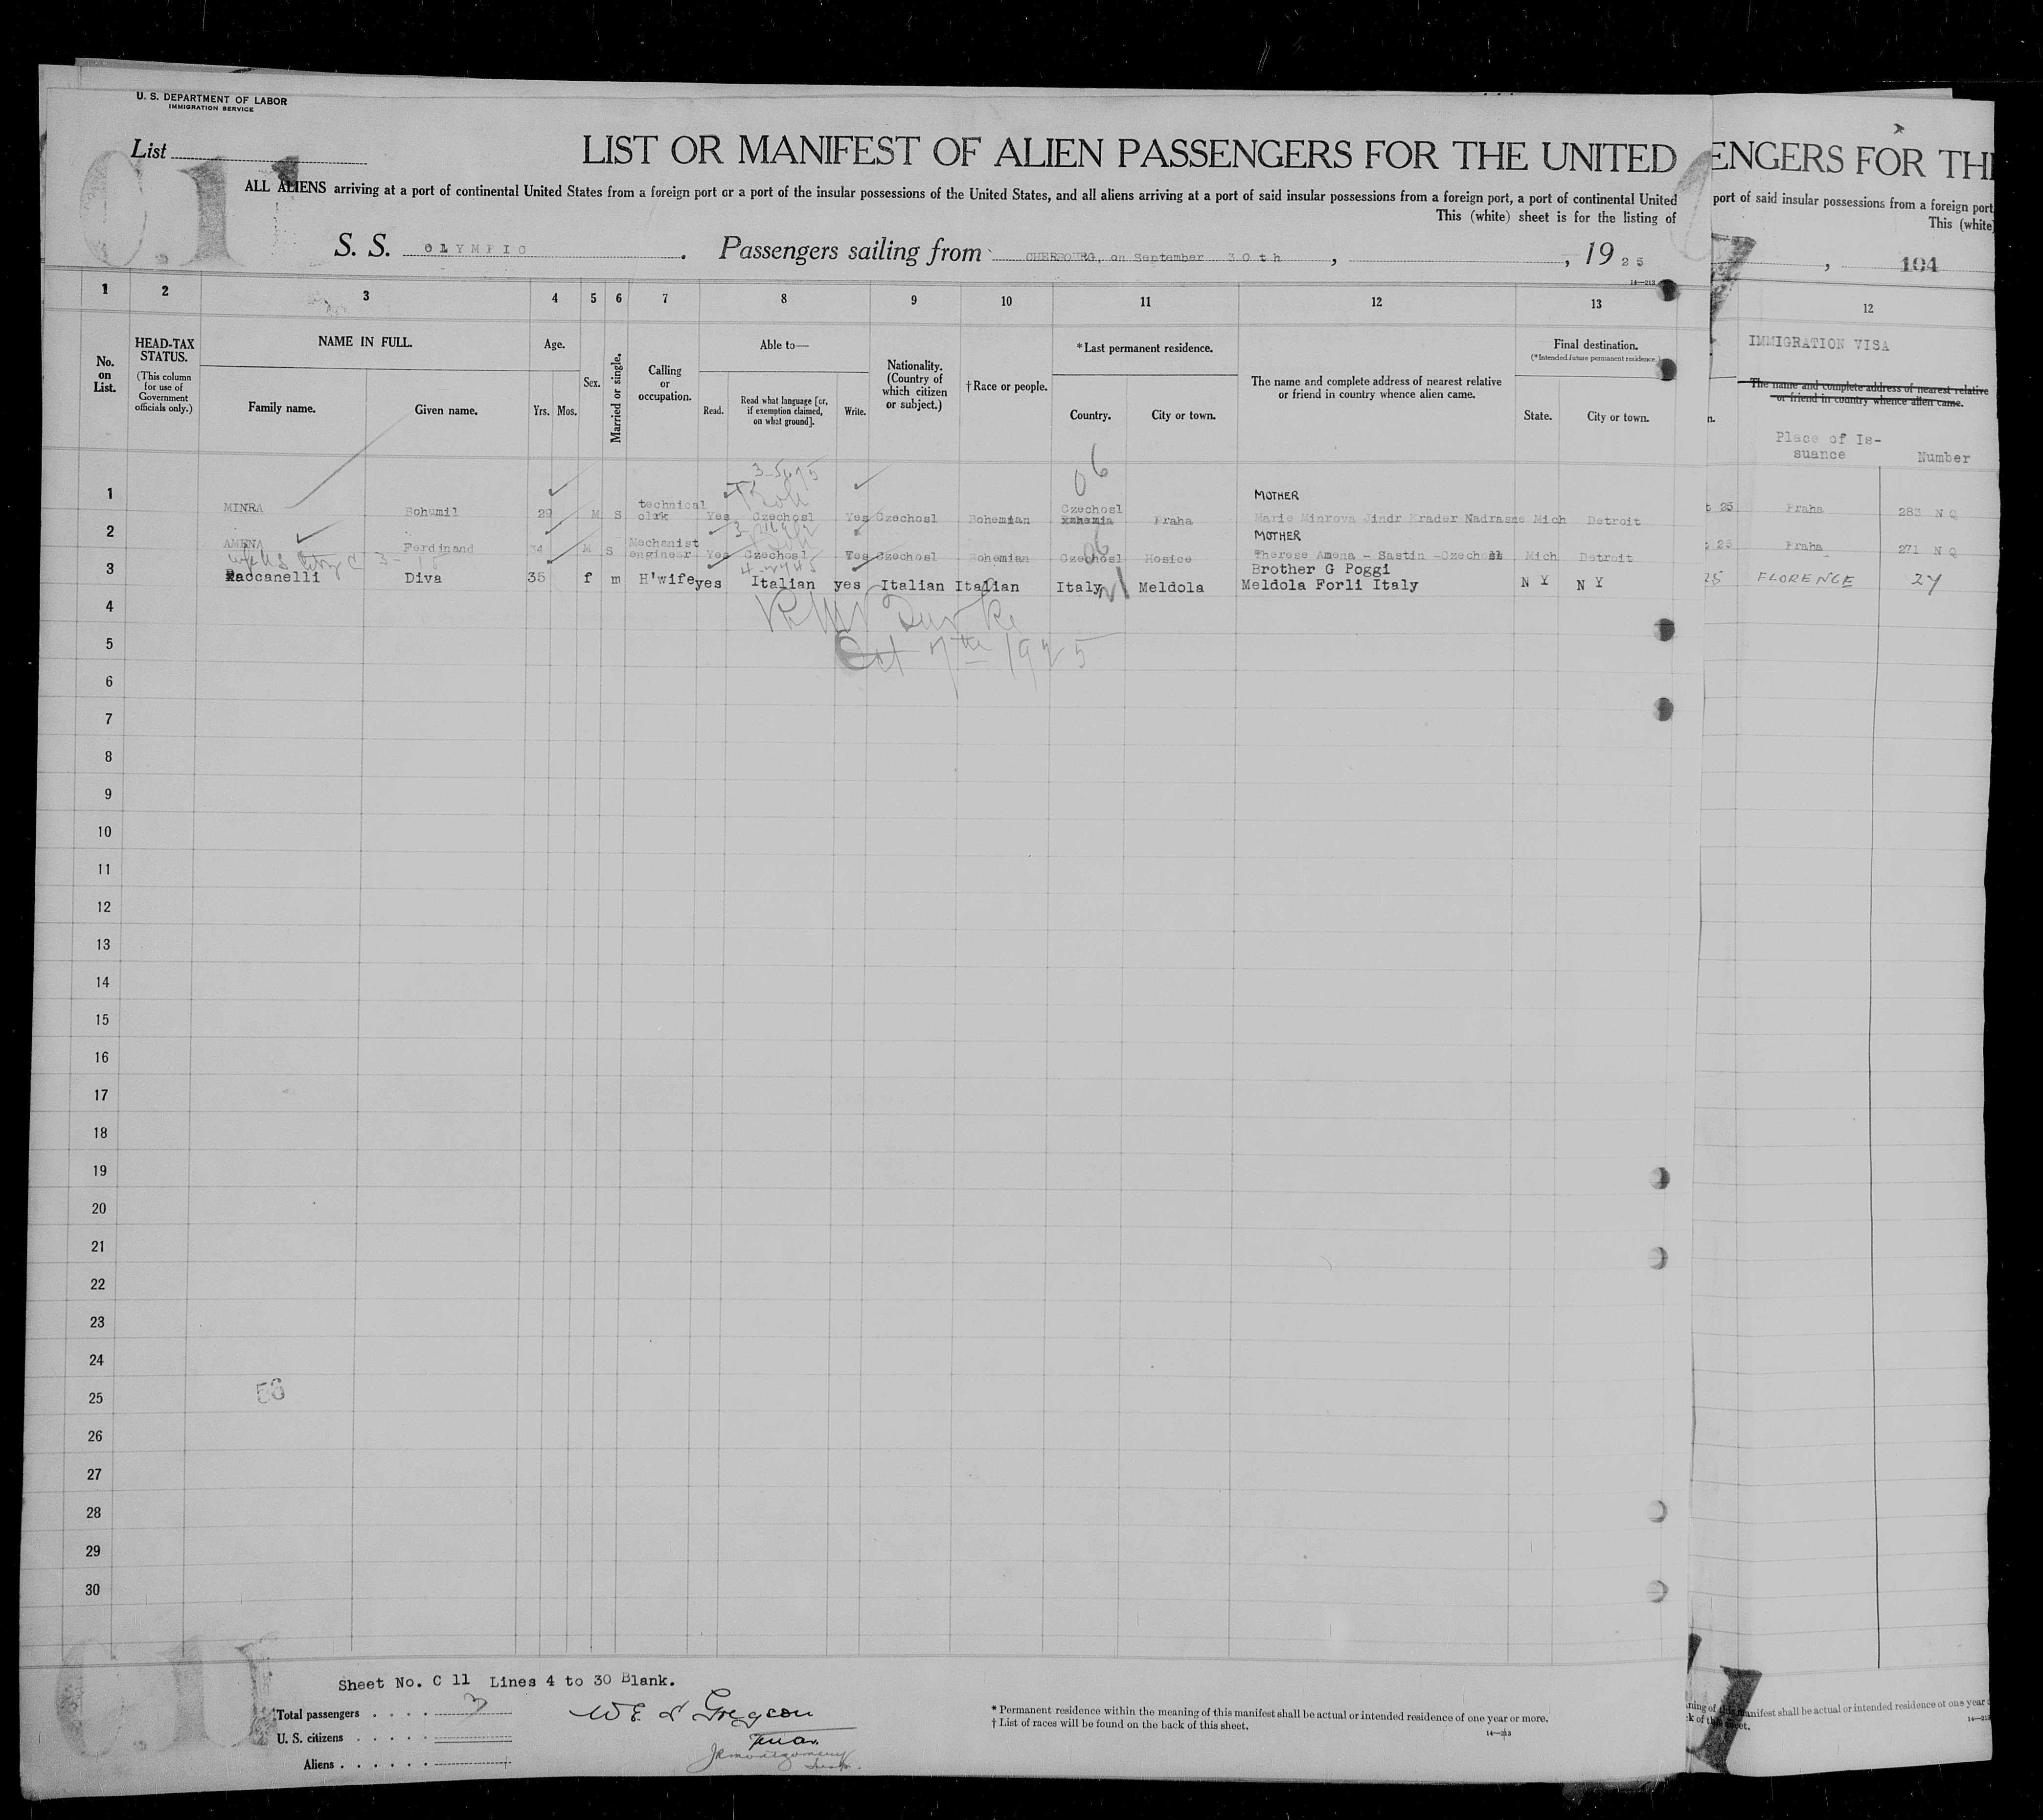 U. S. DEPARTMENT OF LABOR
IMMIGRATION SERVICE
List
C.11
LIST OR MANIFEST OF ALIEN PASSENGERS FOR THE UNITED
ALL ALIENS arriving at a port of continental United States from a foreign port or a port of the insular possessions of the United States, and all aliens arriving at a port of said insular possessions from a foreign port, a port of continental United
This (white) sheet is for the listing of
S. S. OLYMPIC. Passengers sailing from CHERBOURG, on September 30th, , 1925
14—213
1 2 3 4 5 6 7 8 9 10 11 12 13
No. on List.
HEAD-TAX STATUS. (This column for use of Government officials only.)
NAME IN FULL.
Family name. Given name.
Age.
Yrs. Mos.
Sex.
Married or single.
Calling or occupation.
Able to—
Read. Read what language [or, if exemption claimed, on what ground]. Write.
Nationality. (Country of which citizen or subject.)
†Race or people.
*Last permanent residence.
Country. City or town.
The name and complete address of nearest relative or friend in country whence alien came.
Final destination.
(*Intended future permanent residence.)
State. City or town.
06
MOTHER
1 MINRA Bohumil 29 M S technical clrk Yes Czechosl Yes Czechosl Bohemian Czechosl Bohemia Praha Marie Minrova Jindr Hrader Nadrasne Mich Detroit
MOTHER
2 AMENA Ferdinand 34 M S Mechanist engineer Yes Czechosl Yes Czechosl Bohemian Czechosl Hosice Therese Amena - Sastin -Czechosl Mich Detroit
06
Brother G Poggi
3 Raccanelli Diva 35 f m H'wife yes Italian yes Italian Italian Italy Meldola Meldola Forli Italy N Y N Y
Oct 7th 1925
4
5
6
7
8
9
10
11
12
13
14
15
16
17
18
19
20
21
22
23
24
25
56
26
27
28
29
30
C.11
Sheet No. C 11 Lines 4 to 30 Blank.
Total passengers . . . . 3
U. S. citizens . . . . .
Aliens . . . . . .
* Permanent residence within the meaning of this manifest shall be actual or intended residence of one year or more.
† List of races will be found on the back of this sheet.
14—213
ENGERS FOR THE
port of said insular possessions from a foreign port
This (white)
, 104
12
IMMIGRATION VISA
The name and complete address of nearest relative
or friend in country whence alien came.
Place of Issuance Number
25 Praha 283 N Q
25 Praha 271 N Q
25 FLORENCE 27
manifest shall be actual or intended residence of one year
14—213